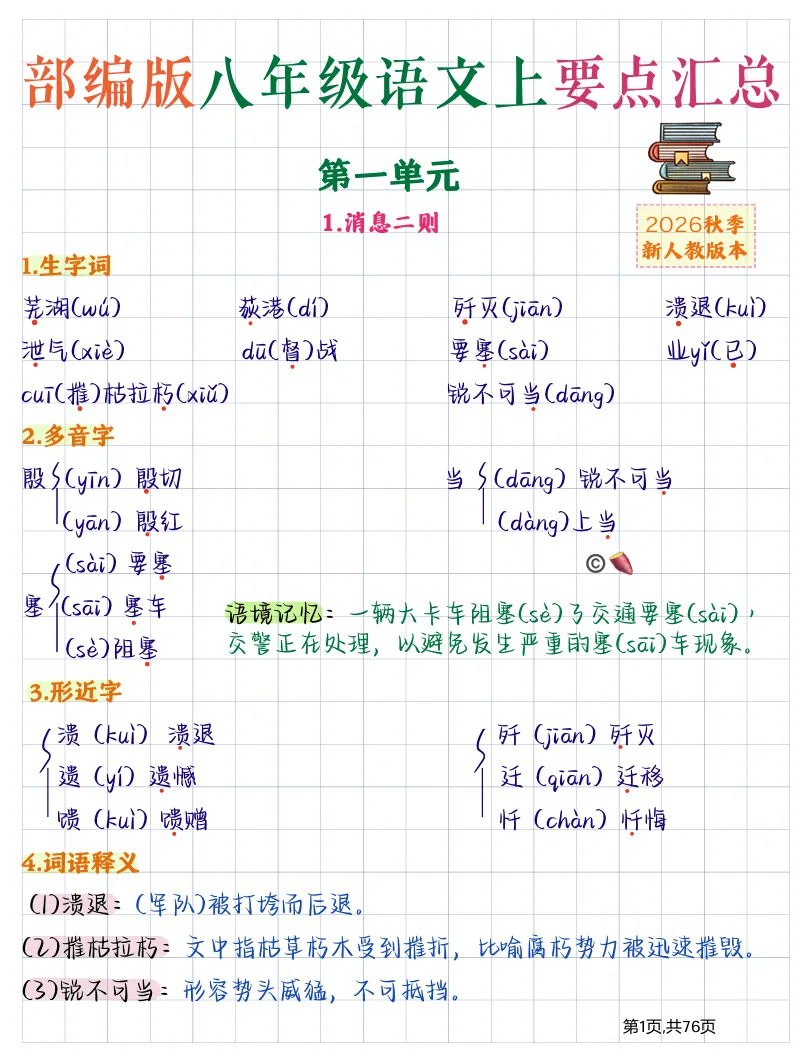 部编版八年级语文上要点汇总
第一单元
1.消息二则
2026秋季
新人教版本
1.生字词
芜湖(wú) 荻港(dí) 歼灭(jiān) 溃退(kuì)
泄气(xiè) dū(督)战 要塞(sài) 业yǐ(已)
cuī(摧)枯拉朽(xiǔ) 锐不可当(dāng)
2.多音字
殷 (yīn) 殷切 当 (dāng) 锐不可当
(yān) 殷红 (dàng)上当
(sài) 要塞 ©
塞 (sāi) 塞车 语境记忆：一辆大卡车阻塞(sè)了交通要塞(sài)，
(sè)阻塞 交警正在处理，以避免发生严重的塞(sāi)车现象。
3.形近字
溃 (kuì) 溃退 歼 (jiān) 歼灭
遗 (yí) 遗憾 迁 (qiān) 迁移
馈 (kuì) 馈赠 忏 (chàn) 忏悔
4.词语释义
(1)溃退：(军队)被打垮而后退。
(2)摧枯拉朽：文中指枯草朽木受到摧折，比喻腐朽势力被迅速摧毁。
(3)锐不可当：形容势头威猛，不可抵挡。
第1页,共76页